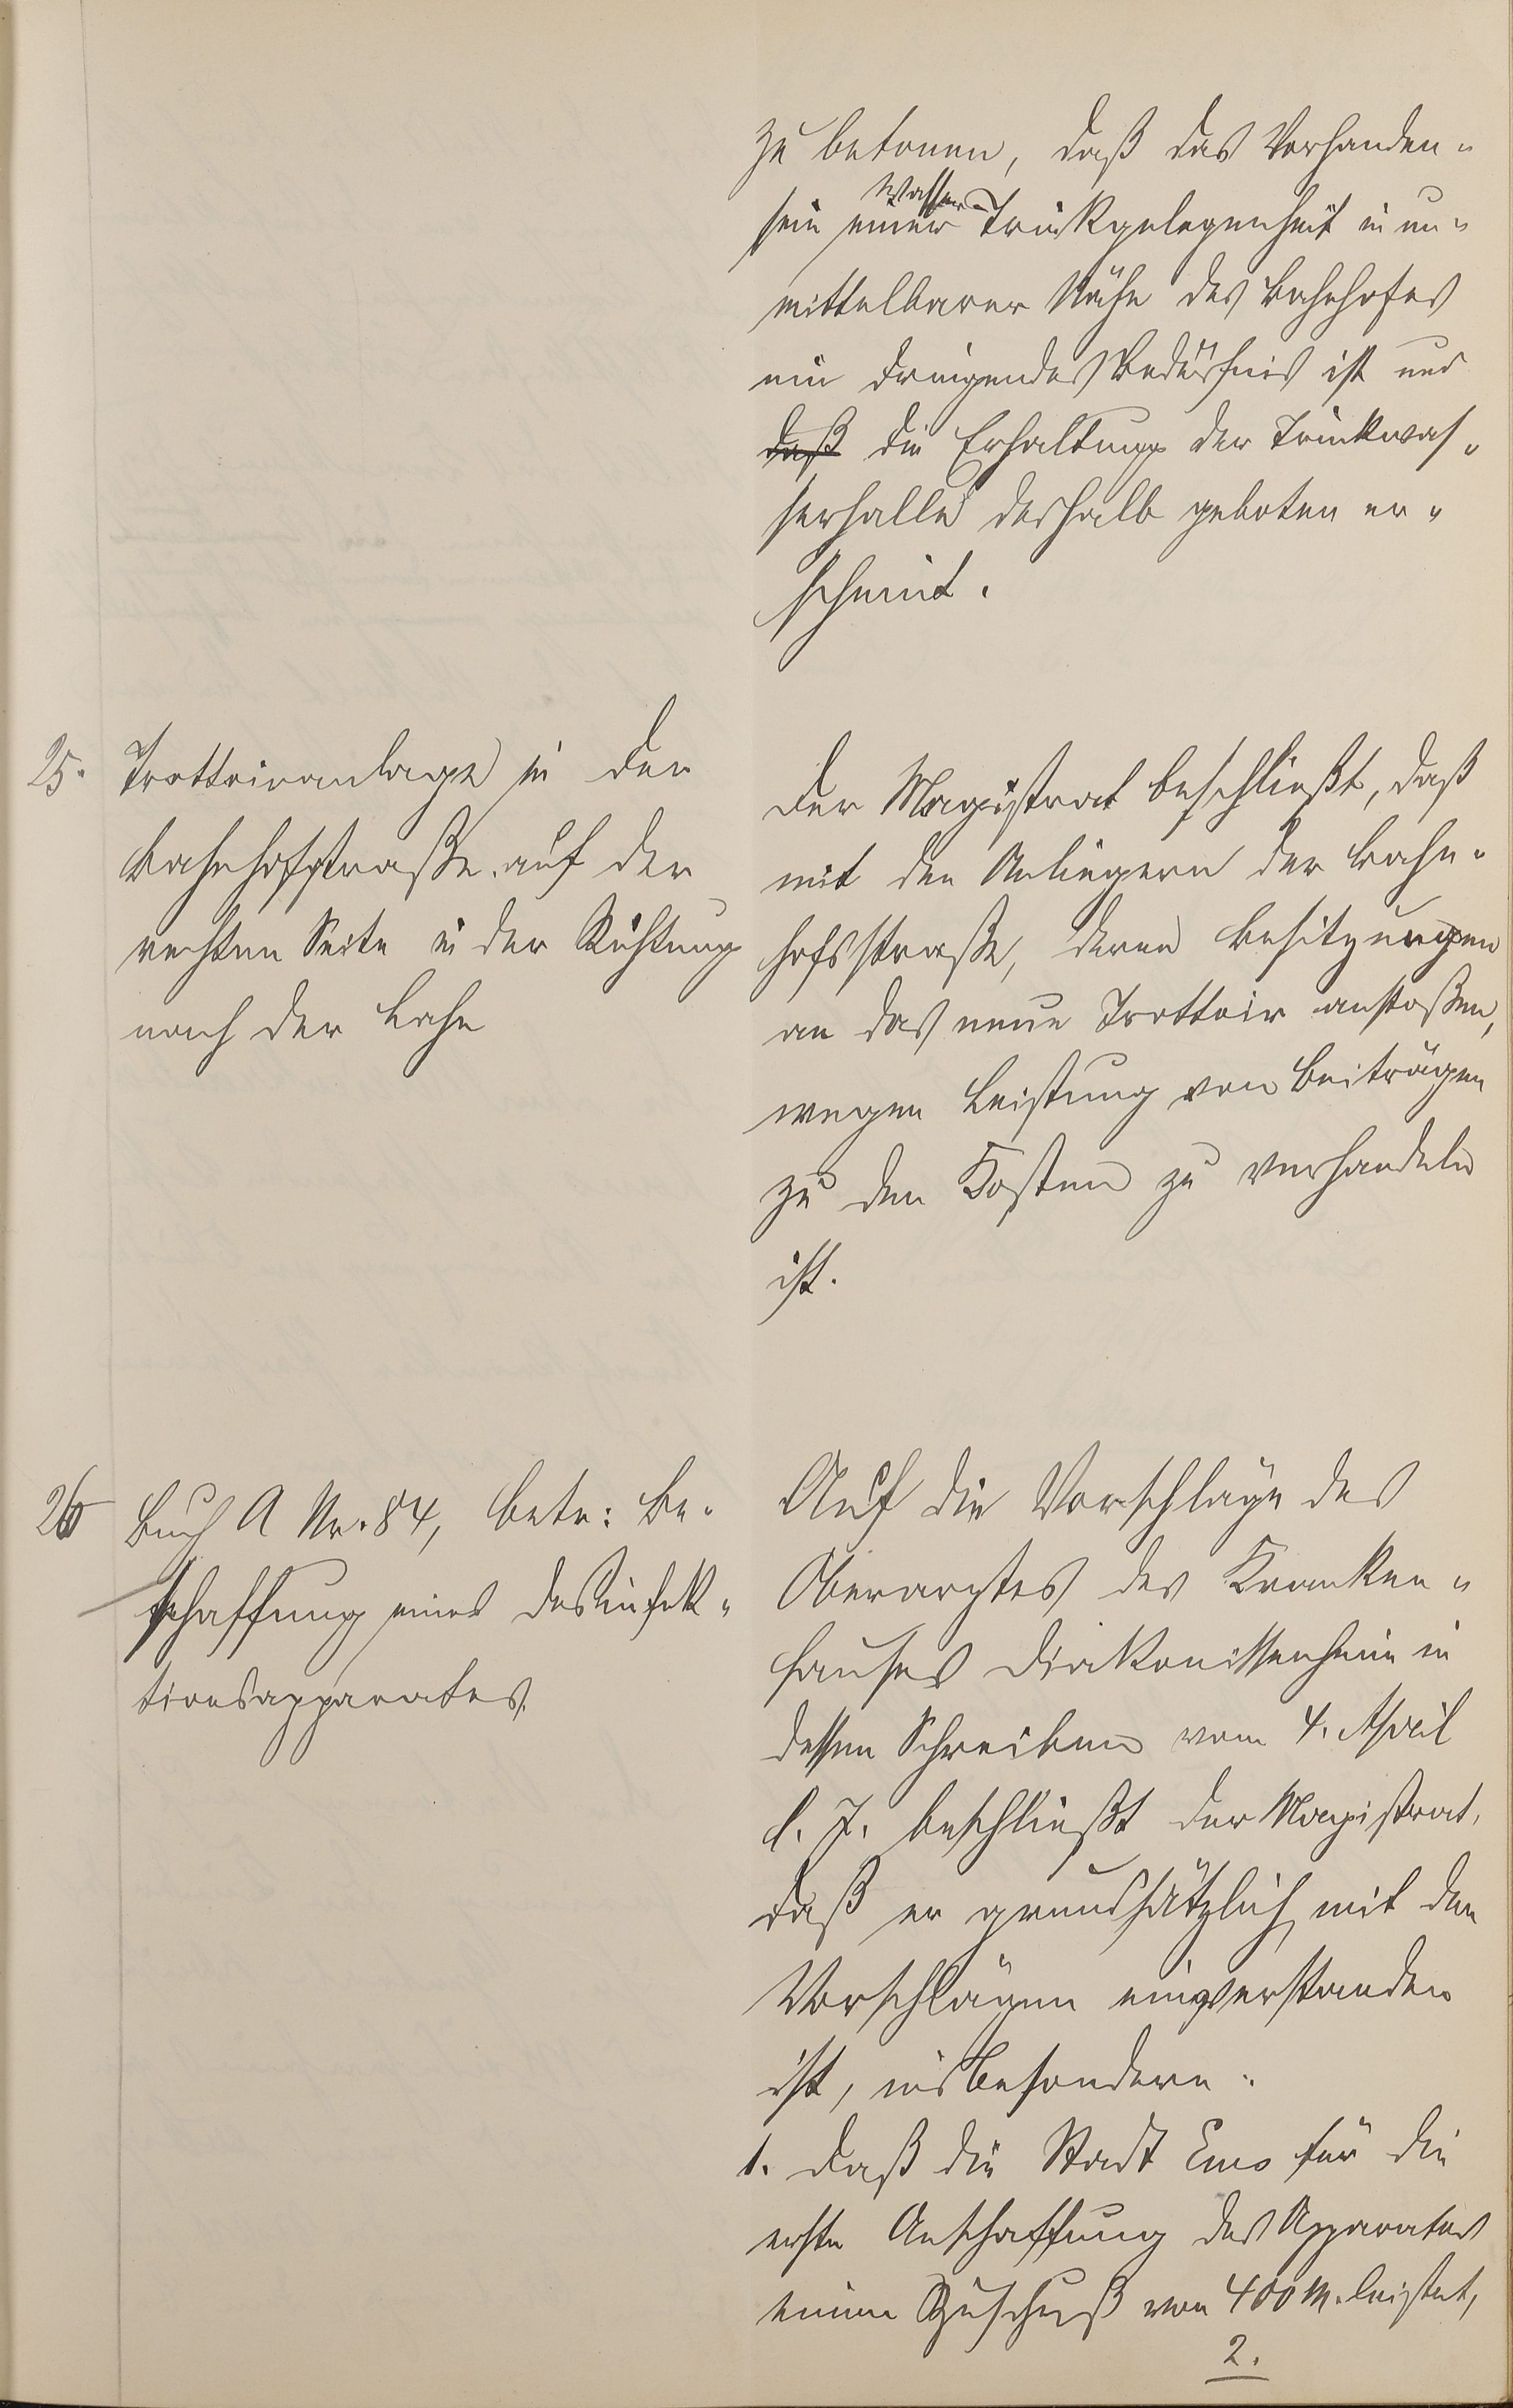 zu betonen, daß das Vorhanden-
sein einer Wasser-Trinkgelegenheit in un-
mittelbarer Nähe des Bahnhofes
ein dringendes Bedürfnis ist und
daß die Erhaltung der Trinkwas-
serhalle deshalb geboten er-
scheint.
25. Trottoiranlage in der
Bahnhofstraße auf der
rechten Seite in der Richtung
nach der Lahn
Der Magistrat beschließt, daß
mit den Anliegern der Bahn-
hofsstraße, deren Besitzungen
an das neue Trottoir anstoßen,
wegen Leistung von Beiträgen
zu den Kosten zu verhandeln
ist.
26 Buch A Nr. 84, betr: Be-
schaffung eines Desinfek-
tionsapparates.
Auf die Vorschläge des
Oberarztes des Kranken-
hauses Diakonissenheim in
dessen Schreiben vom 4. April
l. J. beschließt der Magistrat,
daß er grundsätzlich mit den
Vorschlägen einverstanden
ist, insbesondere:
1. daß die Stadt Ems für die
erste Anschaffung des Apparates
einen Zuschuß von 400 M. leistet,
2.